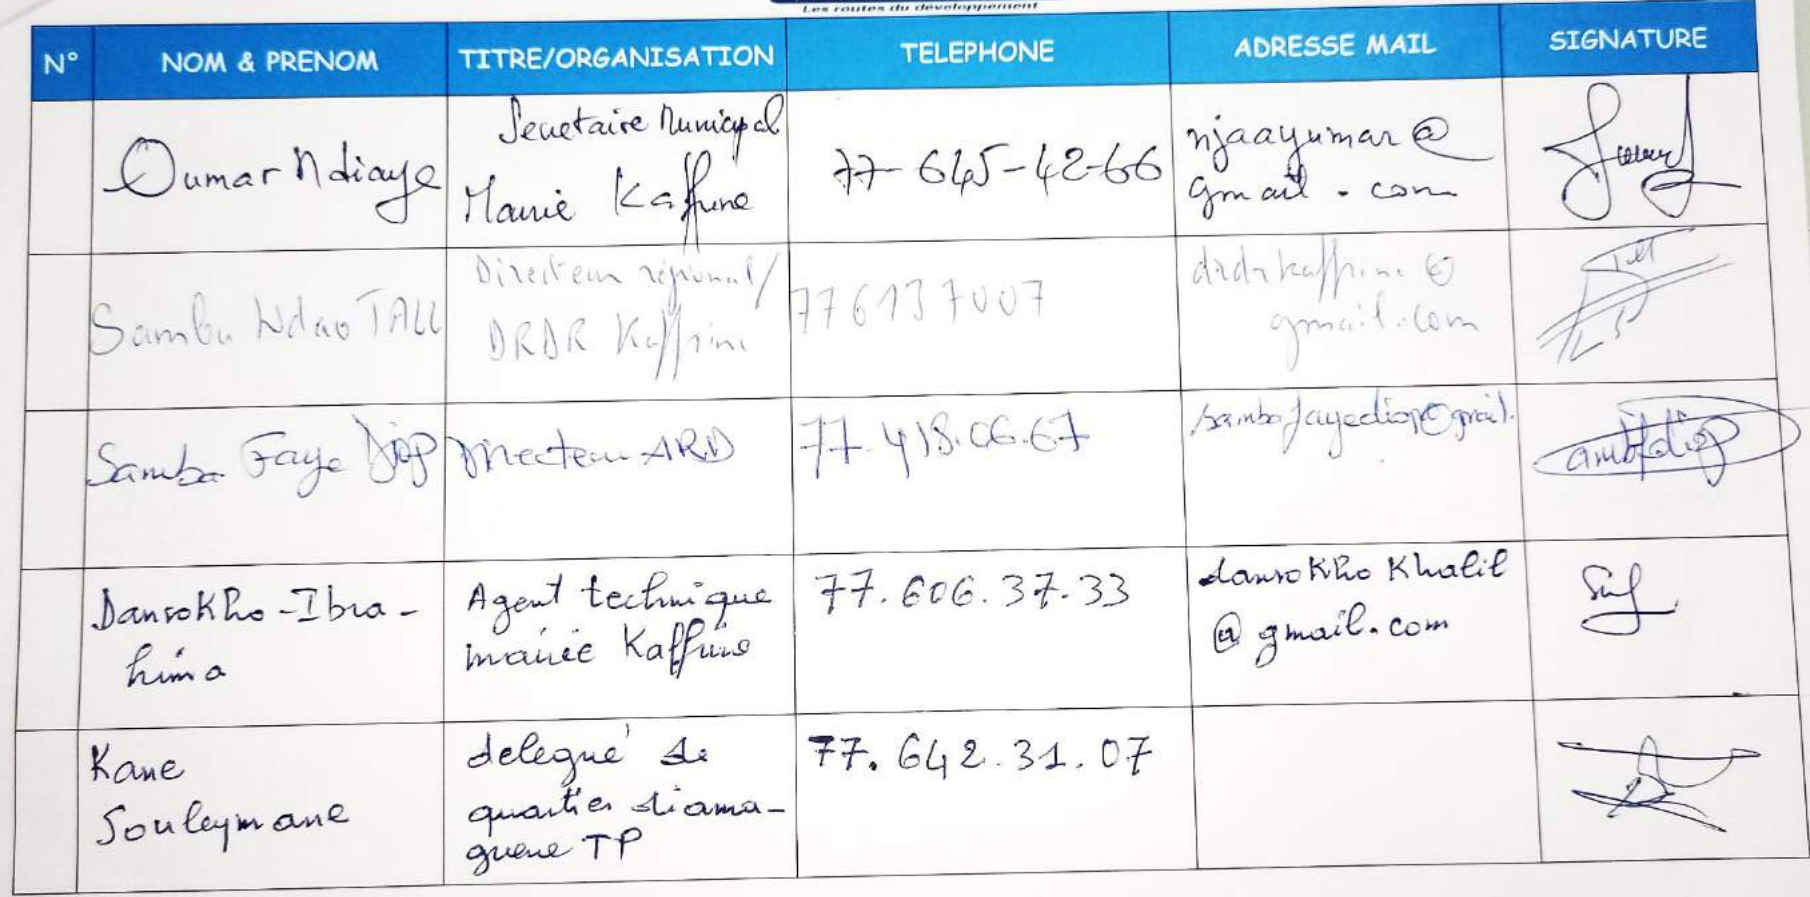 Les routes du développement
N° NOM & PRENOM TITRE/ORGANISATION TELEPHONE ADRESSE MAIL SIGNATURE
Oumar Ndiaye
Secretaire Municipal
Mairie Kaffrine
77-645-42-66
njaayumar@
gmail.com
Samba Ndao TALL
Directeur régional/
DRDR Kaffrine
776137007
drdrkaffrine@
gmail.com
Samba Faye Diop
Directeur ARD
77.418.06.67
sambafayediop@gmail.
Dansokho-Ibra-
hima
Agent technique
mairie Kaffrine
77.606.37.33
dansokho Khalil
@gmail.com
Kane
Souleymane
delegué de
quartier diama-
guene TP
77.642.31.07